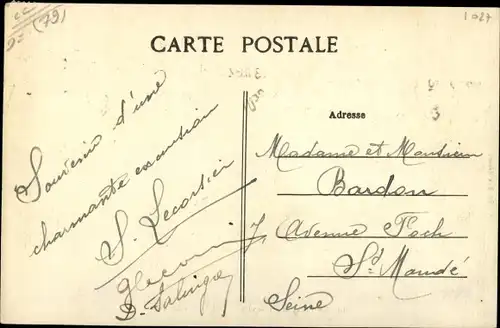 (79)
1027
CARTE POSTALE
Souvenir d'une
charmante excursion
S. Lecorsier
Adresse
Madame et Monsieur
Bardon
7 Avenue Foch
St Mandé
Seine